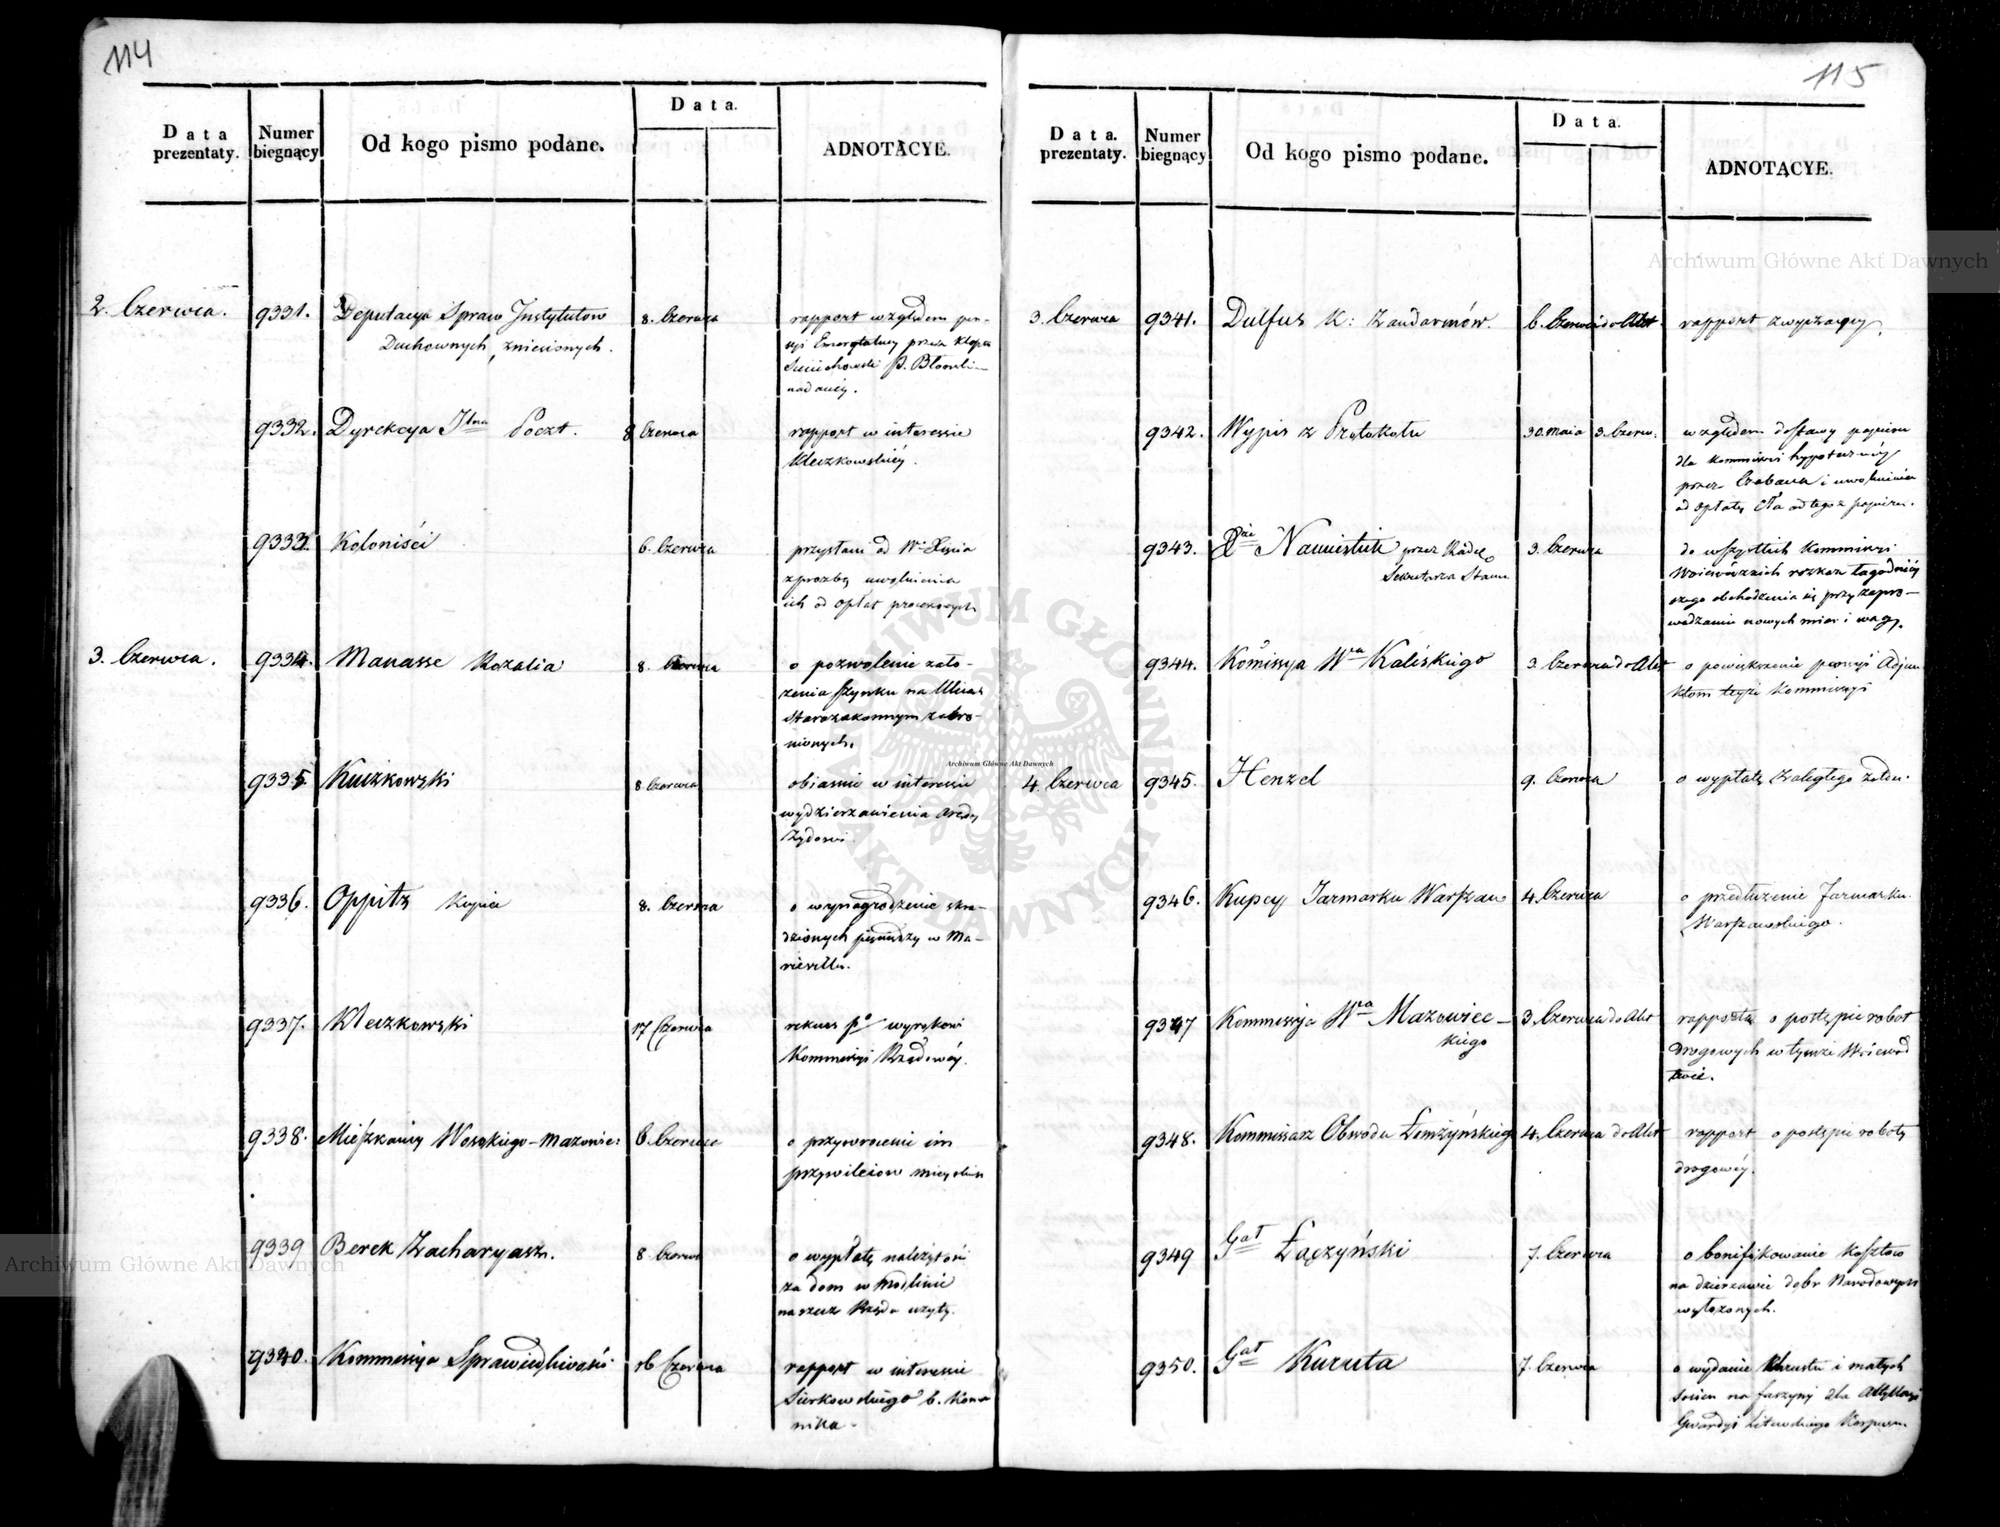 114
Data prezentaty.
Numer biegnący
Od kogo pismo podane.
Data.
ADNOTACYE.
2. Czerwca.
9331.
Deputacya Spraw Instytutow
Duchownych, zniesionych.
8. Czerwca
rapport względem pen-
syi Emerytalney przez Xiędza
nadaney.
9332.
Dyrekcya Jlna Poczt.
8 Czerwca
rapport w interessie
Kleczkowskiéy.
9333.
Koloniści
6. Czerwca
przysłani od Wo Xięcia
z prozbą uwolnienia
ich od opłat procesowych
3. Czerwca.
9334.
Manasse Rozalia
8. Czerwca
o pozwolenie zało-
żenia szynku na Ulicach
Starozakonnym zabro-
nionych.
9335.
Kuczkowski
8 Czerwca
obiasnie w interessie
wydzierzawienia Arędy
Żydowi.
9336.
Oppitz Kupiec
8. Czerwca
o wynagrodzenie skra-
dzionych pieniędzy w Ma-
rievillu.
9337.
Kleczkowski
17 Czerwca
rekurs po wyrokowi
Kommissyi Rządowéy.
9338.
Mieszkańcy Wosokiego-Mazowie:
6. Czerwca
o przywrocenie im
przywileiow mieyskich
9339
Berek Zacharyasz.
8. Czerwca
o wypłatę należytości
za dom w Modlinie
na rzecz Rządu użyty.
9340.
Kommissya Sprawiedliwości
16 Czerwca
rapport w interessie
Sierkowskiego b. Komor
nika.
115
Data. prezentaty.
Numer biegnący
Od kogo pismo podane.
Data.
ADNOTACYE.
3. Czerwca
9341.
Dulfus K: Żandarmów.
6. Czerwca do Akt.
rapport zwyczayny.
9342.
Wypis z Protokołu
30. Maia
3. Czerw:
względem dostawy papieru
dla Kommissyi hypoteczney
przez Czabana i uwolnienia
od opłaty Cła od tegoż papieru.
9343.
Xże Namiestnik przez Radcę
Sekretarza Stanu
3. Czerwca
do wszystkich Kommissyi
Woiewódzkich rozkaz łagodniéy
szego obchodzenia się przy zapro-
wadzaniu nowych miar i wag.
9344.
Kommissya Wa Kaliskiego
3. Czerwca do Akt
o powiększenie pensyi Adjun
ktom teyże Kommissyi
4. Czerwca
9345.
Henzel
9. Czerwca
o wypłatę zaległego żołdu.
9346.
Kupcy Jarmarku Warszaw
4. Czerwca
o przedłużenie Jarmarku
Warszawskiego.
9347
Kommissya Wa Mazowiec-
kiego
3. Czerwca do Akt
rapporta o postępie robot
drogowych w tymże Woiewod
twie.
9348.
Kommissarz Obwodu Łomżyńskiego
4. Czerwca do Akt
rapport o postępie roboty
drogowéy.
9349
Gał Łączyński
7. Czerwca
o bonifikowanie kosztow
na dzierżawie dobr Narodowych
wyłożonych.
9350.
Gał Kuruta
7. Czerwca
o wydanie Chrustu i małych
sosien na faszyny dla Artylleryi
Gwardyi Litewskiego Korpusu.
Archiwum Główne Akt Dawnych
Archiwum Główne Akt Dawnych
Archiwum Główne Akt Dawnych
ARCHIWUM GŁÓWNE AKT DAWNYCH